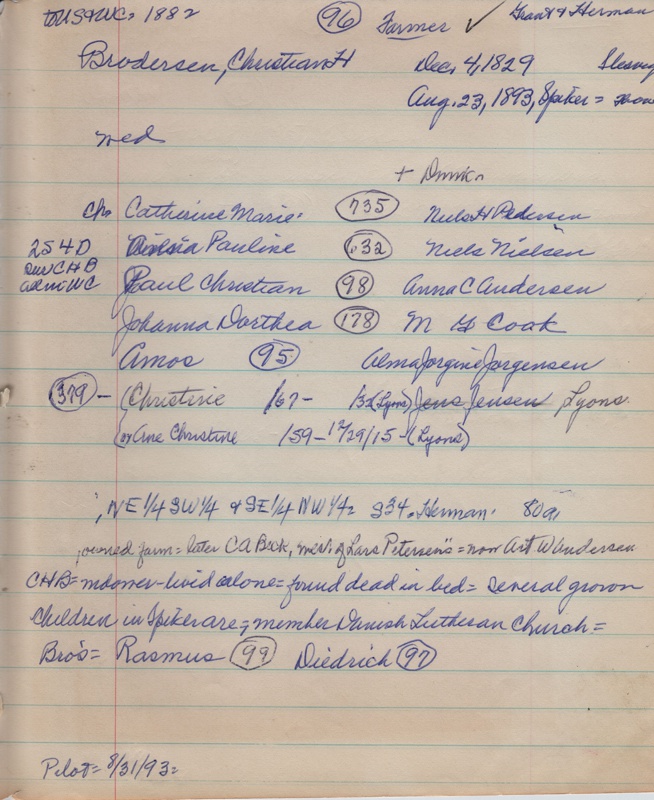 to US & WC = 1882 (96) Farmer ✓ Grant & Herman
Brodersen, Christian H Dec, 4, 1829
Aug. 23, 1893, Spiker =
wed
+ Denmk.
ch. Catherine Marie. (735) Niels H Pedersen
2S 4D Pauline (632) Niels Nielsen
surv CHB Paul Christian (98) Anna C Andersen
adm WC
Johanna Dorthea (178) M G Cook
Amos (95) Alma Jorgine Jorgensen
(379) - (Christine 167- 132 (Lyons) Jens Jensen Lyons.
(or Ane Christine 159 - 12/29/15 - (Lyons)
NE 1/4 SW 1/4 & SE 1/4 NW 1/4 = S34. Herman. 80a
owned farm = later C A Beck, of Lars Petersen's = now Art W Andersen
CHB = lived alone = found dead in bed = several grown
children in Spiker are; member Danish Lutheran Church =
Bro's = Rasmus (99) Diedrich (97)
Pilot = 8/31/93 =